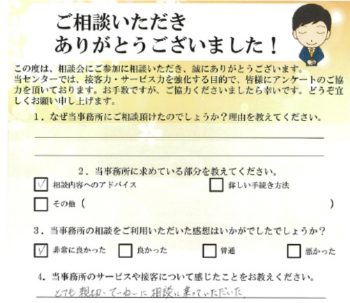 ご相談いただき
ありがとうございました！
この度は、相談会にご参加に相談いただき、誠にありがとうございます。
当センターでは、接客力・サービス力を強化する目的で、皆様にアンケートのご協
力を頂いております。お手数ですが、ご協力くださいましたら幸いです。どうぞ宜
しくお願い申し上げます。
１．なぜ当事務所にご相談頂けたのでしょうか？理由を教えてください。
２．当事務所に求めている部分を教えてください。
☑ 相談内容へのアドバイス □ 詳しい手続き方法
□ その他（ ）
３．当事務所の相談をご利用いただいた感想はいかがでしたでしょうか？
☑ 非常に良かった □ 良かった □ 普通 □ 悪かった
４．当事務所のサービスや接客について感じたことをお教えください。
とても親切、てーねーに相談に乗っていただいた